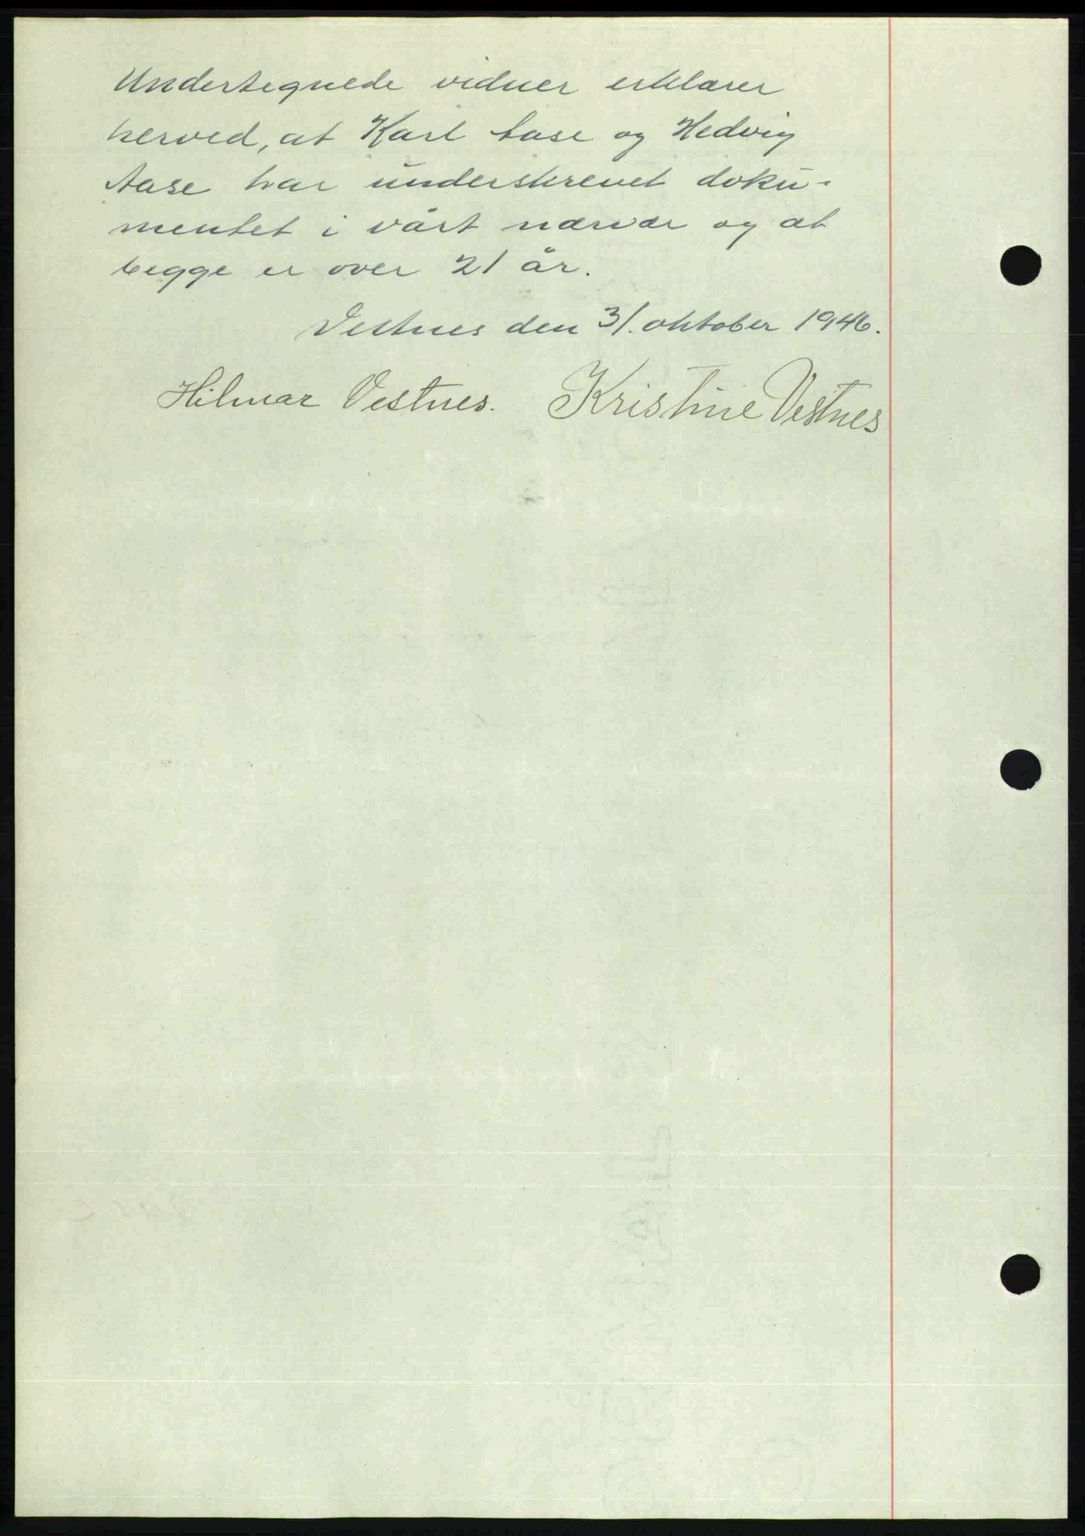 Undertegnede vidner erklærer
herved, at Karl Aase og Hedvig
Aase har underskrevet doku-
mentet i vårt nærvær og at
begge er over 21 år.
Vestnes den 31. oktober 1946.
Hilmar Vestnes. Kristine Vestnes